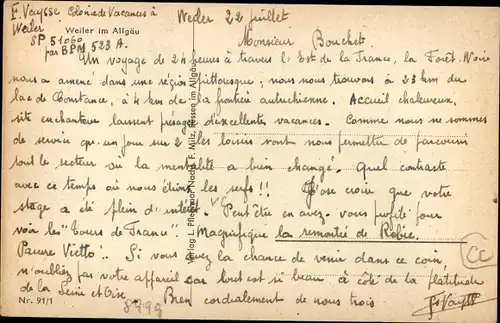 F. Vaysse Colonie de Vacances à
Weiler
SP 51060
par BPM 523 A.
Weiler im Allgäu
Weiler 22 juillet
Monsieur Bouchet
Un voyage de 24 heures à travers l'Est de la France, la Forêt-Noire
nous a amené dans une région pittoresque; nous nous trouvons à 23 km du
lac de Constance, à 4 km de la frontière autrichienne. Accueil chaleureux,
site enchanteur laissent présager d'excellentes vacances. Comme nous ne sommes
de service qu'un jour sur 2 les loisirs vont nous permettre de parcourir
tout le secteur où la mentalité a bien changé. Quel contraste
avec ce temps où nous étions les serfs!! J'ose croire que votre
stage a été plein d'intérêt. Peut être en avez-vous profité pour
voir les "Tours de France". Magnifique la remontée de Robic.
Pauvre Vietto. Si vous avez la chance de venir dans ce coin
n'oubliez pas votre appareil car tout est si beau à côté de la platitude
de la Seine et Oise. Bien cordialement de nous trois
F Vaysse
CC
Nr. 91/1
8999
Verlag L. Pfleghaar Nachf. F. Milz, Nesselwang im Allgäu